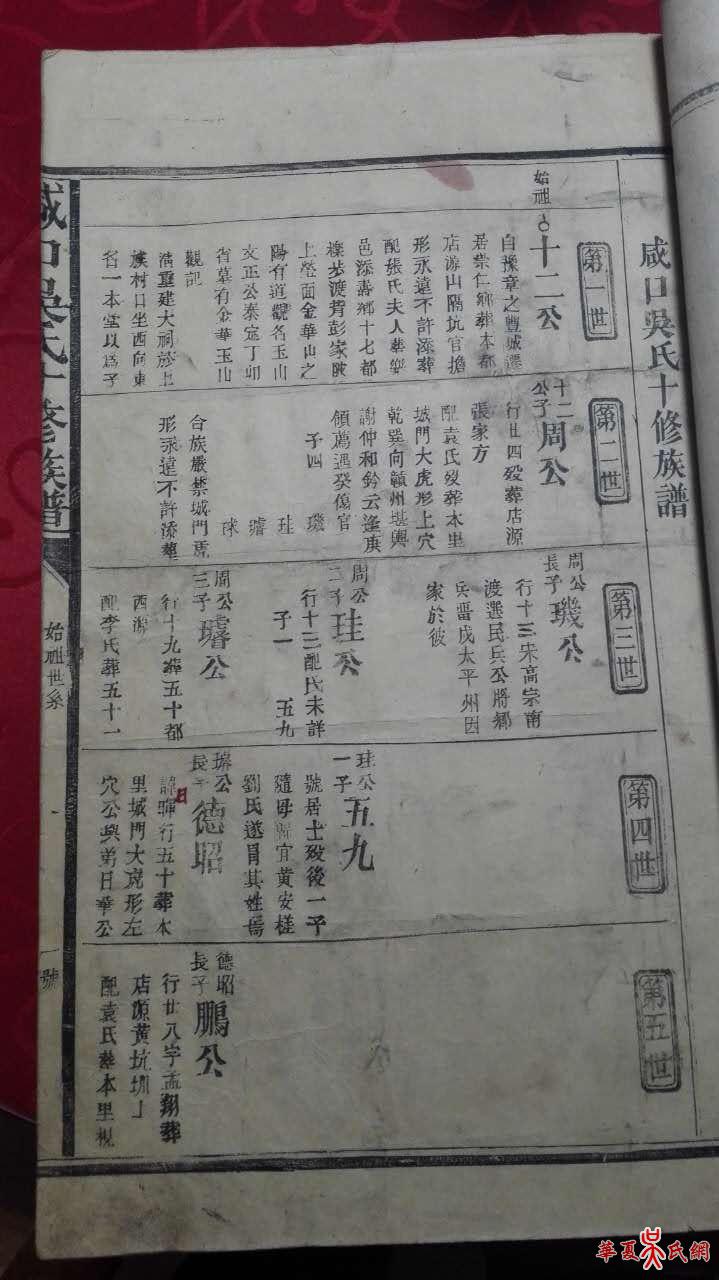 咸口吳氏十修族譜
第一世
始祖
十二公
自豫章之豐城遷
居崇仁鄉葬本都
店源山隔坑官擔
形永遠不許添葬
配張氏夫人葬崇
邑添壽鄉十七都
上塋面金華山之
陽有道觀名玉山
文正公秦定丁卯
省墓有金華玉山
觀記
清重建大祠於上
族村口坐西向東
名一本堂以爲子
第二世
十二公子
周公
行廿四歿葬店源
張家方
配袁氏歿葬本里
城門大虎形上穴
乾巽向贛州堪輿
謝仲和鈐云逢庚
領薦遇癸傷官
子四
璣
珪
璿
球
合族嚴禁城門虎
形永遠不許添葬
第三世
周公長子
璣公
行十三宋高宗南
渡選民兵公將鄉
兵晋戍太平州因
家於彼
周公二子
珪公
行十三配氏未詳
子一 五九
周公三子
璿公
行十九葬五十都
西源
配李氏葬五十一
第四世
珪公一子
五九
號居士歿後一子
隨母歸宜黄安槎
劉氏遂冒其姓焉
璿公長子
德昭
諱暉行五十葬本
里城門大虎形左
穴公與弟日華公
第五世
德昭長子
鵬公
行廿八字孟翔葬
店源黄坑圳丄
配袁氏葬本里棍
咸口吳氏十修族譜
始祖世系
一號
華夏吳氏網